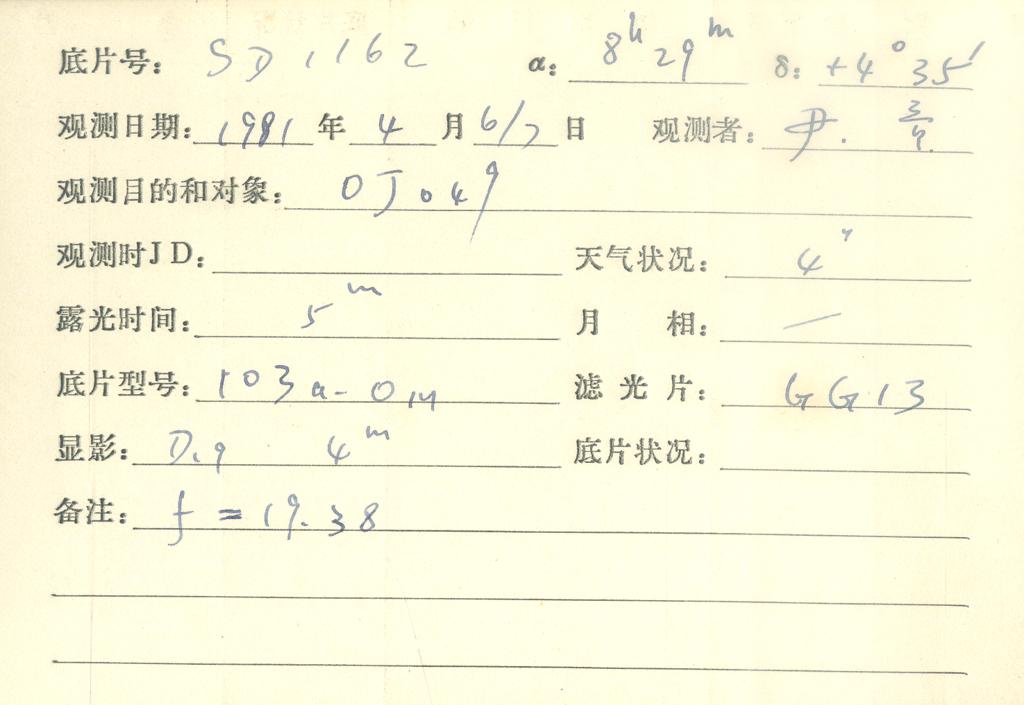 底片号: SD1162 α: 8h 29m δ: +4° 35′
观测日期: 1981 年 4 月 6/7 日 观测者: 尹.
观测目的和对象: OJ049
观测时JD: 天气状况: 4″
露光时间: 5m 月 相: —
底片型号: 103a-O 滤光片: GG13
显影: D.19 4m 底片状况:
备注: f = 19.38